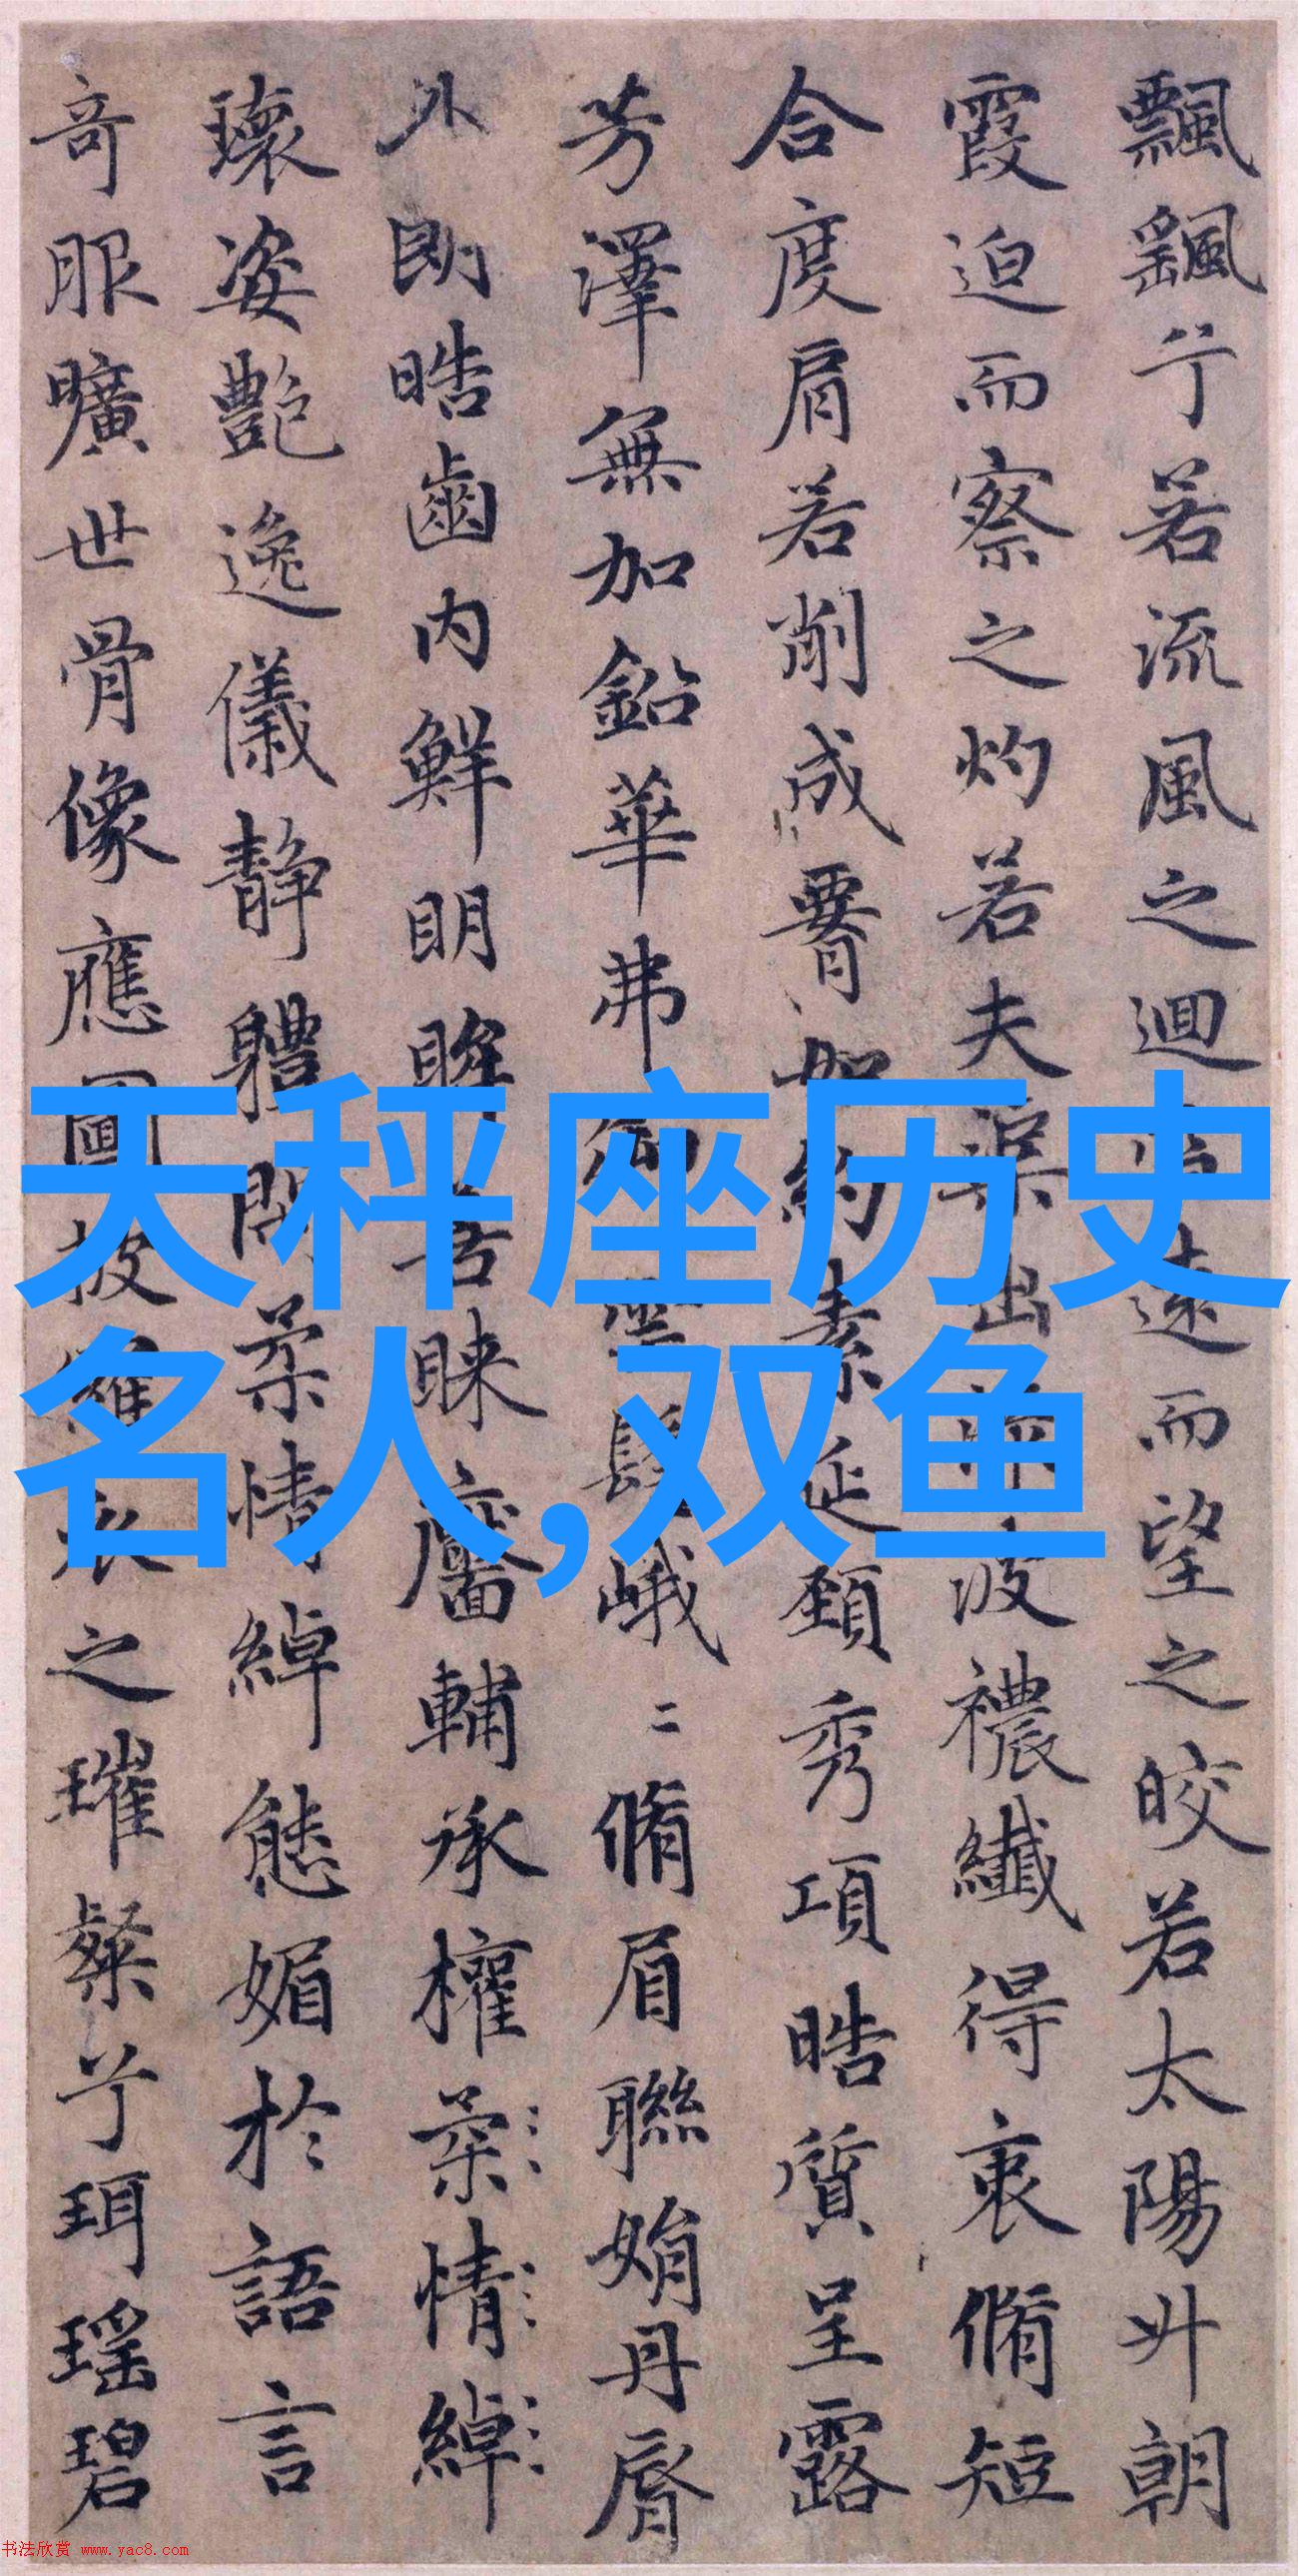 飄颻兮若流風之迴遠而望之皎若太陽升朝
霞迫而察之灼若夫渠出波襛纖得衷脩短
合度肩若削成腰如約素延頸秀項晧質呈露
芳澤無加鉛華弗御雲髻峨二脩眉聯娟丹脣
外朗晧齒內鮮明眸善睞靨輔承權柔情綽
瓌姿艷逸儀靜體閑柔情綽態媚於語言
奇服曠世骨像應圖披羅衣之璀粲兮珥瑤碧
天秤座历史
名人,双鱼
书法欣赏 www.yac8.com